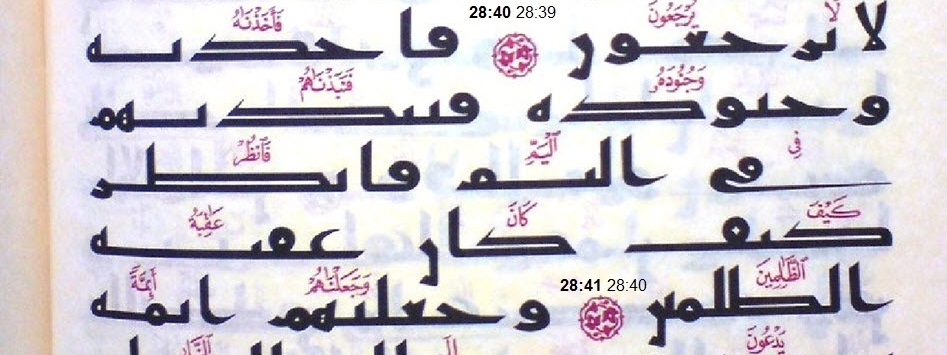 لَا يُرْجَعُونَ 28:40 28:39 فَأَخَذْنَٰهُ
لا يرجعون فاخذنه
وَجُنُودَهُۥ فَنَبَذْنَاهُمْ
وجنوده فنبذنهم
فِي ٱلْيَمِّ فَٱنظُرْ
في اليم فانظر
كَيْفَ كَانَ عَٰقِبَةُ
كيف كان عقبه
ٱلظَّالِمِينَ 28:41 28:40 وَجَعَلْنَٰهُمْ أَئِمَّةً
الظلمين وجعلنهم ائمة
يَدْعُونَ